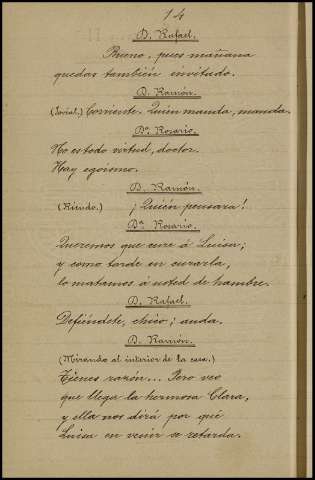 14
D. Rafael.
Bueno, pues mañana
quedas también invitado.
D. Ramón.
(Jovial.) Corriente. Quien manda, manda.
Dª. Rosario.
No es todo virtud, doctor.
Hay egoismo.
D. Ramón.
(Riendo.) ¡Quién pensara!
Dª. Rosario.
Queremos que cure á Luisa;
y como tarde en curarla,
lo matamos á usted de hambre.
D. Rafael.
Defiéndete, chico; anda.
D. Ramón.
(Mirando al interior de la casa.)
Tienes razón... Pero veo
que llega la hermosa Clara,
y ella nos dirá por qué
Luisa en venir se retarda.